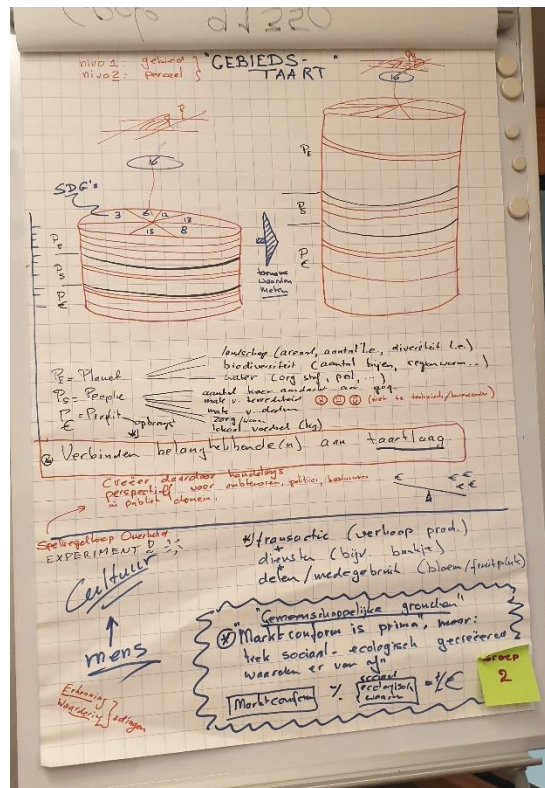 nivo 1: gebied
nivo 2: perceel
"GEBIEDS-
TAART"
16
16
SDG's
3 6 12 13
15 8
PE
PS
P€
toename
waarden
meten
PE
PS
P
€
PE = Planet
PS = People
P€ = Profit
opbrengst
landschap (areaal, aantal l.e., diversiteit l.e.)
biodiversiteit (aantal bijen, regenworm...)
water (org stof, pol, ...)
aantal keer aandacht aan geg.
mate v. tevredenheid (niet te technisch/bureaucr.)
mate v.
zorg/
lokaal voedsel (kg)
Verbinden belanghebbende(n) aan taartlaag
Creëer daardoor handelings
perspectief voor ambtenaren, politici, bestuurders
in publiek domein.
€ € € € €
Spelregelloop Overheid
EXPERIMENT!
Cultuur
mens
Erkenning
Waardering
*) transactie (verkoop prod.)
+
diensten (bijv. bankje)
+
delen/medegebruik (bloem/fruitpluk)
"Gemeenschappelijke gronden"
"Marktconform is prima", maar:
trek sociaal-ecologisch gecreëerde
waarden er van af"
Marktconform % sociaal ecologisch waarden = €
Groep
2